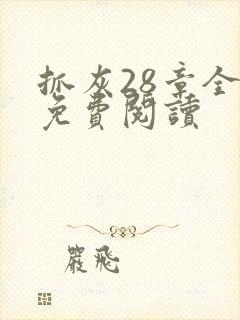 抓灰28章全
免費閱讀
嚴飛